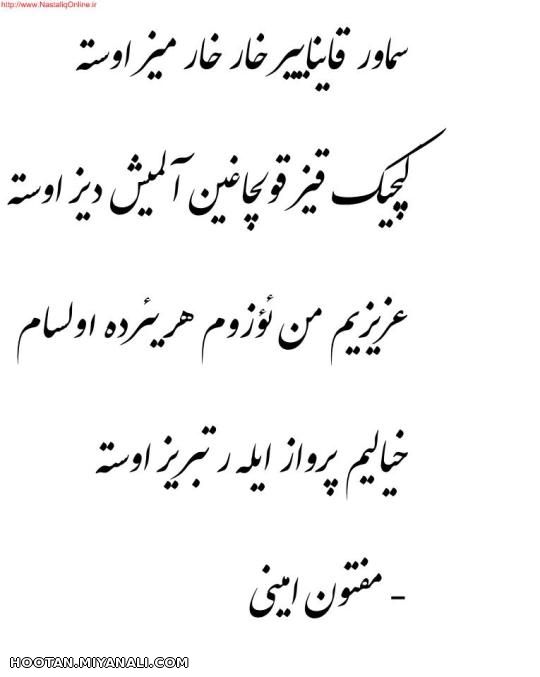 http://www.NastaliqOnline.ir
سماور قایناییر خار خار میز اوسته
کیچیک قیز قولچاغین آلمیش دیز اوسته
عزیزیم من ئؤزوم هر یئرده اولسام
خیالیم پرواز ایله ر تبریز اوسته
- مفتون امینی
HOOTAN.MIYANALI.COM